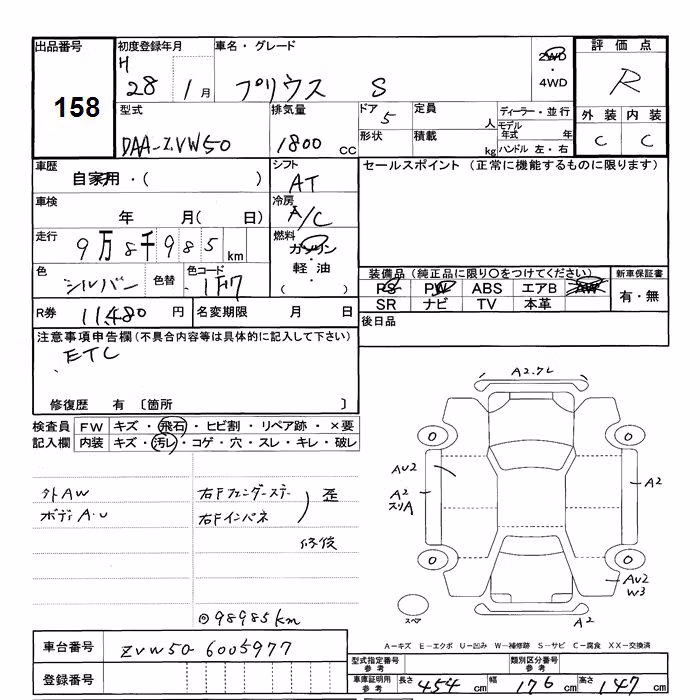 出品番号
158
初度登録年月
H 28 1月
車名・グレード
プリウス S
2WD
・4WD
評価点
R
外装 内装
C C
型式
DAA-ZVW50
排気量
1800 CC
ドア 5
形状
定員 人
積載 kg
ディーラー・並行
モデル年式 年
ハンドル 左・右
車歴
自家用・( )
シフト
AT
セールスポイント (正常に機能するものに限ります)
車検
年 月( 日)
冷房
A/C
走行
9万8千985km
燃料
ガソリン
・軽油・
( )
色
シルバー
色替
色コード
1F7
装備品(純正品に限り○をつけてください)
PS PW ABS エアB AW
SR ナビ TV 本革
新車保証書
有・無
R券 11,480 円
名変期限 月 日
後日品
注意事項申告欄(不具合内容等は具体的に記入して下さい)
ETC
修復歴 有 〔箇所 〕
検査員 FW キズ・飛石・ヒビ割・リペア跡・×要
記入欄 内装 キズ・汚レ・コゲ・穴・スレ・キレ・破レ
外AW
ボディA・U
右Fフェンダーステー
右Fインパネ
歪
修復
98985km
A2.7L
AU2
A2
スリA
A2
AU2
W3
A2
スペア
A-キズ E-エクボ U-凹み W-補修跡 S-サビ C-腐食 XX-交換済
車台番号 ZVW50-6005977
登録番号
型式指定番号
参考
類別区分番号
参考
車庫証明用
参考
長さ 454 cm 幅 176 cm 高さ 147 cm